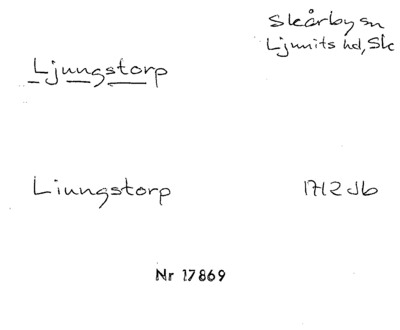 Skårby sn
Ljunits hd, Sk
Ljungstorp
Liungstorp 1712 Jb
Nr 17869